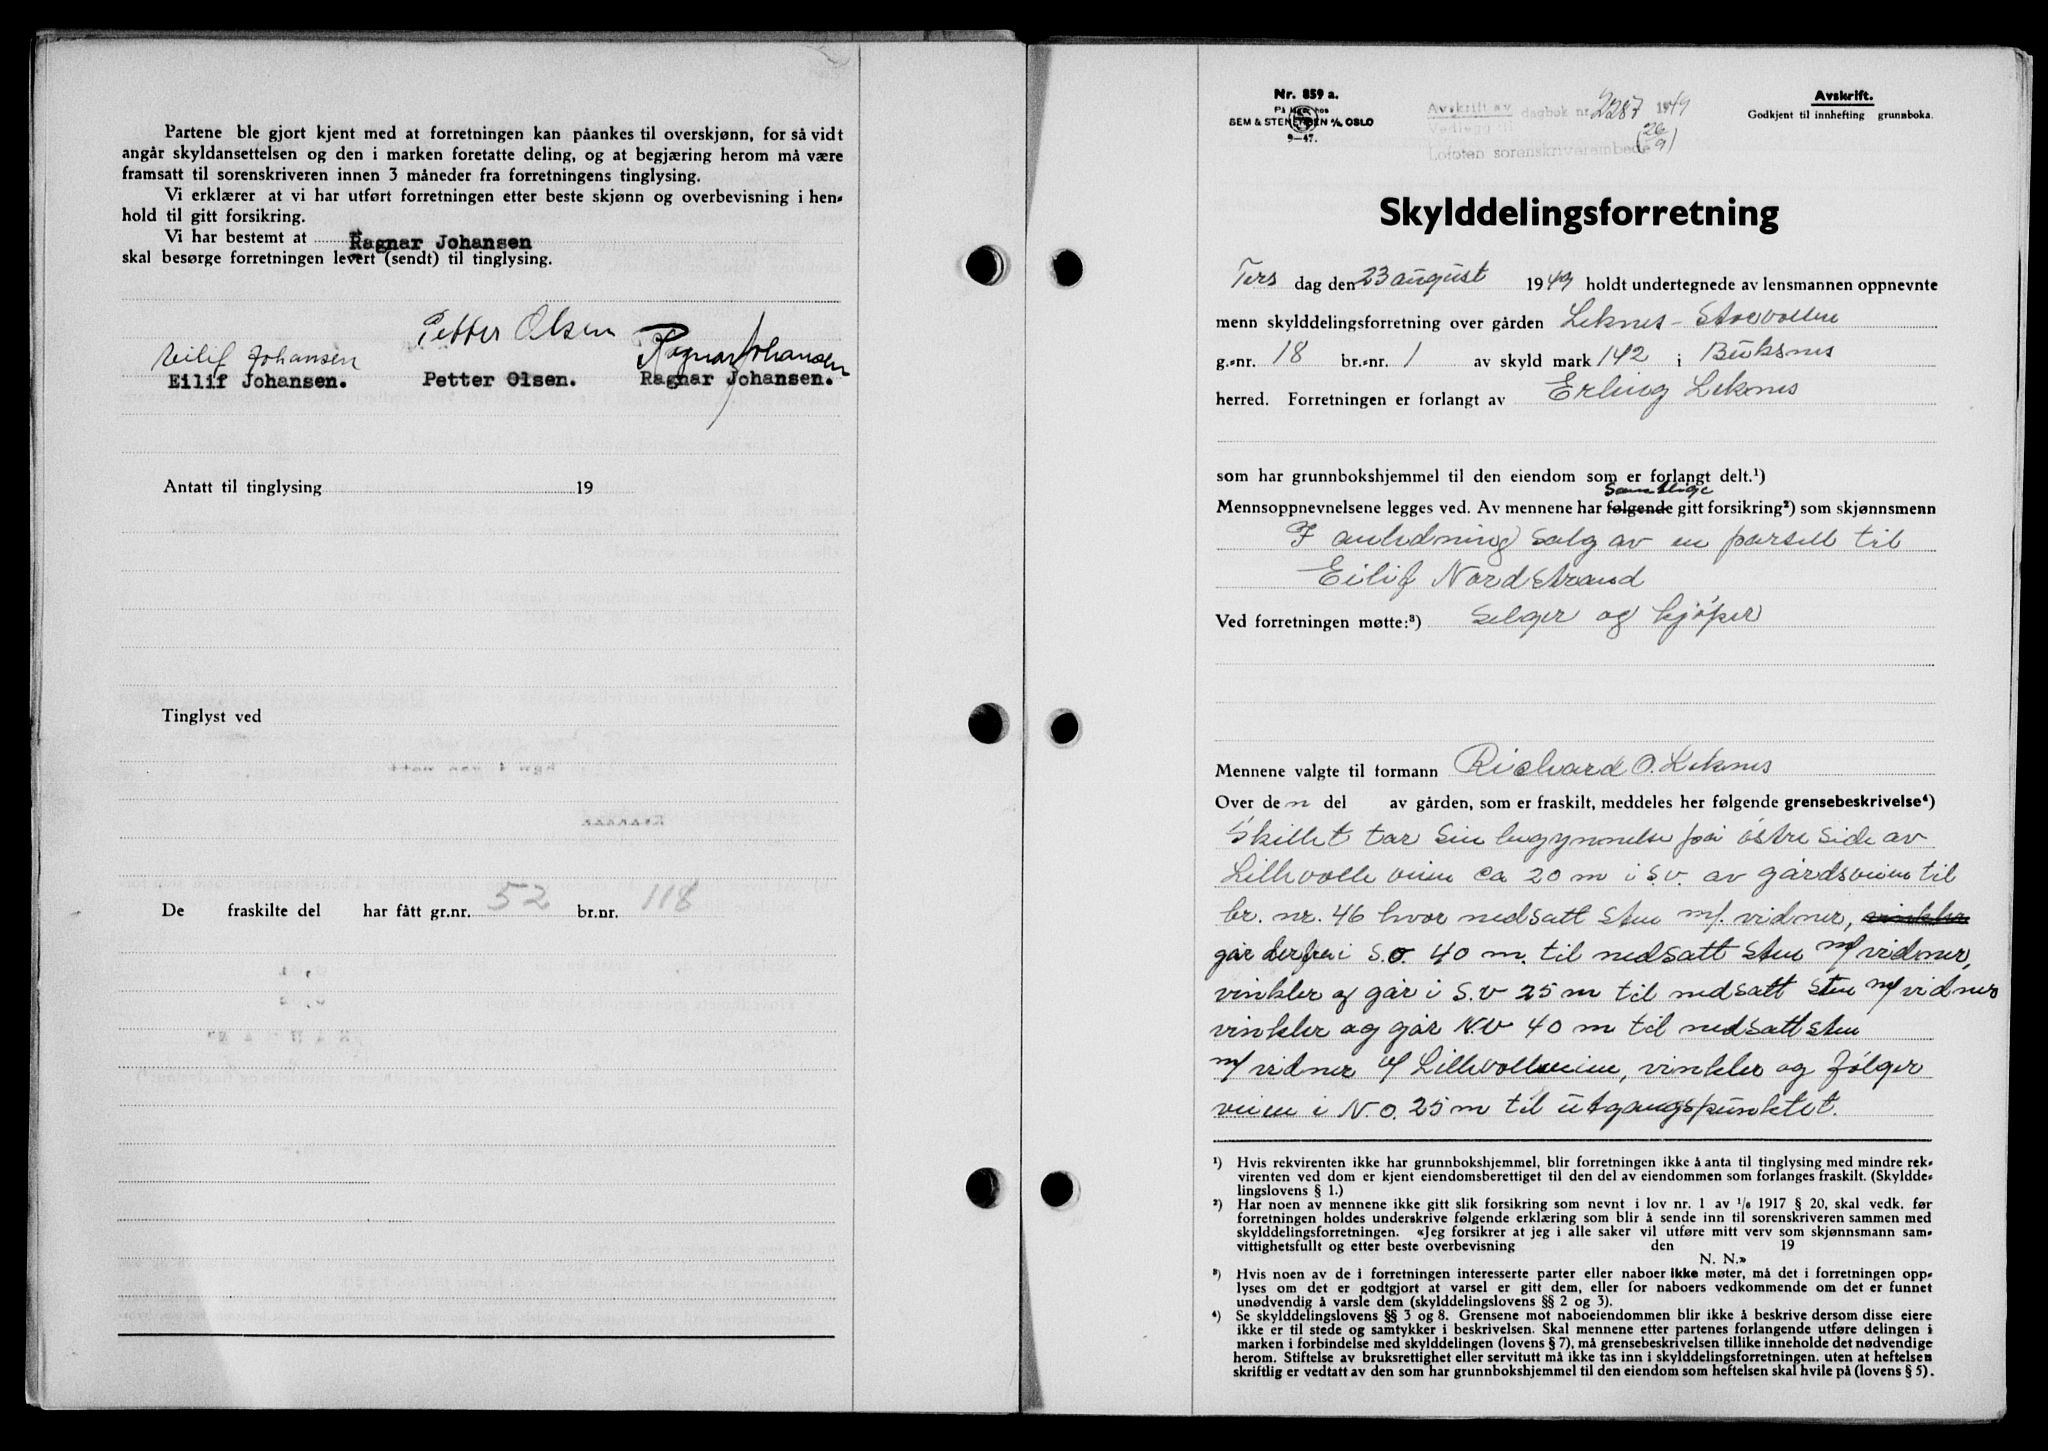 Partene ble gjort kjent med at forretningen kan påankes til overskjønn, for så vidt
angår skyldansettelsen og den i marken foretatte deling, og at begjæring herom må være
framsatt til sorenskriveren innen 3 måneder fra forretningens tinglysing.
Vi erklærer at vi har utført forretningen etter beste skjønn og overbevisning i hen-
hold til gitt forsikring.
Vi har bestemt at Ragnar Johansen
skal besørge forretningen levert (sendt) til tinglysing.
Petter Olsen
Eilif Johansen Ragnar Johansen
Eilif Johansen. Petter Olsen. Ragnar Johansen.
Antatt til tinglysing 19
Tinglyst ved
De fraskilte del har fått gr.nr. 52 br.nr. 118
Nr. 859 a.
På lager hos
SEM & STENERSEN A/S OSLO
9-47.
Avskrift av
Vedlegg til dagbok nr. 2287 1949
Lofoten sorenskriverembede (26/9)
Avskrift.
Godkjent til innhefting grunnboka.
Skylddelingsforretning
Tirs dag den 23 august 1949 holdt undertegnede av lensmannen oppnevnte
menn skylddelingsforretning over gården Leknes - Storvollen
g.-nr. 18 br.-nr. 1 av skyld mark 142 i Buksnes
herred. Forretningen er forlangt av Erling Leknes
som har grunnbokshjemmel til den eiendom som er forlangt delt.¹)
samtlige
Mennsoppnevnelsene legges ved. Av mennene har følgende gitt forsikring²) som skjønnsmenn
I anledning salg av en parsell til
Eilif Nordstrand
Ved forretningen møtte:³) Selger og kjøper
Mennene valgte til formann Richard O. Leknes
Over den del av gården, som er fraskilt, meddeles her følgende grensebeskrivelse⁴)
Skillet tar sin begynnelse på østre side av
Lillevollveien ca 20 m i S.V. av gårdsveien til
br. nr. 46 hvor nedsatt sten m/ vidner, vinkler
går derfra i S.O. 40 m. til nedsatt sten m/ vidner,
vinkler og går i S.V 25 m til nedsatt sten m/ vidner
vinkler og går N.V 40 m til nedsatt sten
m/ vidner v/ Lillevollveien, vinkler og følger
veien i N.O. 25 m til utgangspunktet.
¹) Hvis rekvirenten ikke har grunnbokshjemmel, blir forretningen ikke å anta til tinglysing med mindre rek-
virenten ved dom er kjent eiendomsberettiget til den del av eiendommen som forlanges fraskilt. (Skyldde-
lingslovens § 1.)
²) Har noen av mennene ikke gitt slik forsikring som nevnt i lov nr. 1 av 1/6 1917 § 20, skal vedk. før
forretningen holdes underskrive følgende erklæring som blir å sende inn til sorenskriveren sammen med
skylddelingsforretningen. «Jeg forsikrer at jeg i alle saker vil utføre mitt verv som skjønnsmann sam-
vittighetsfullt og etter beste overbevisning den 19
N. N.»
³) Hvis noen av de i forretningen interesserte parter eller naboer ikke møter, må det i forretningen opp-
lyses om det er godtgjort at varsel er gitt dem, eller for naboers vedkommende om det er funnet
unødvendig å varsle dem (skylddelingslovens §§ 2 og 3).
⁴) Se skylddelingslovens §§ 3 og 8. Grensene mot naboeiendommen blir ikke å beskrive dersom disse eiere
ikke er til stede og samtykker i beskrivelsen. Skal mennene etter partenes forlangende utføre delingen i
marken i forbindelse med skylddelingen (lovens § 7), må grensebeskrivelsen tillike inneholde det nødvendige
herom. Stiftelse av bruksrettighet eller servitutt må ikke tas inn i skylddelingsforretningen. uten at heftelsen
skriftlig er vedtatt av den som har grunnbokshjemmel til den eiendom som heftelsen skal hvile på (lovens § 5).